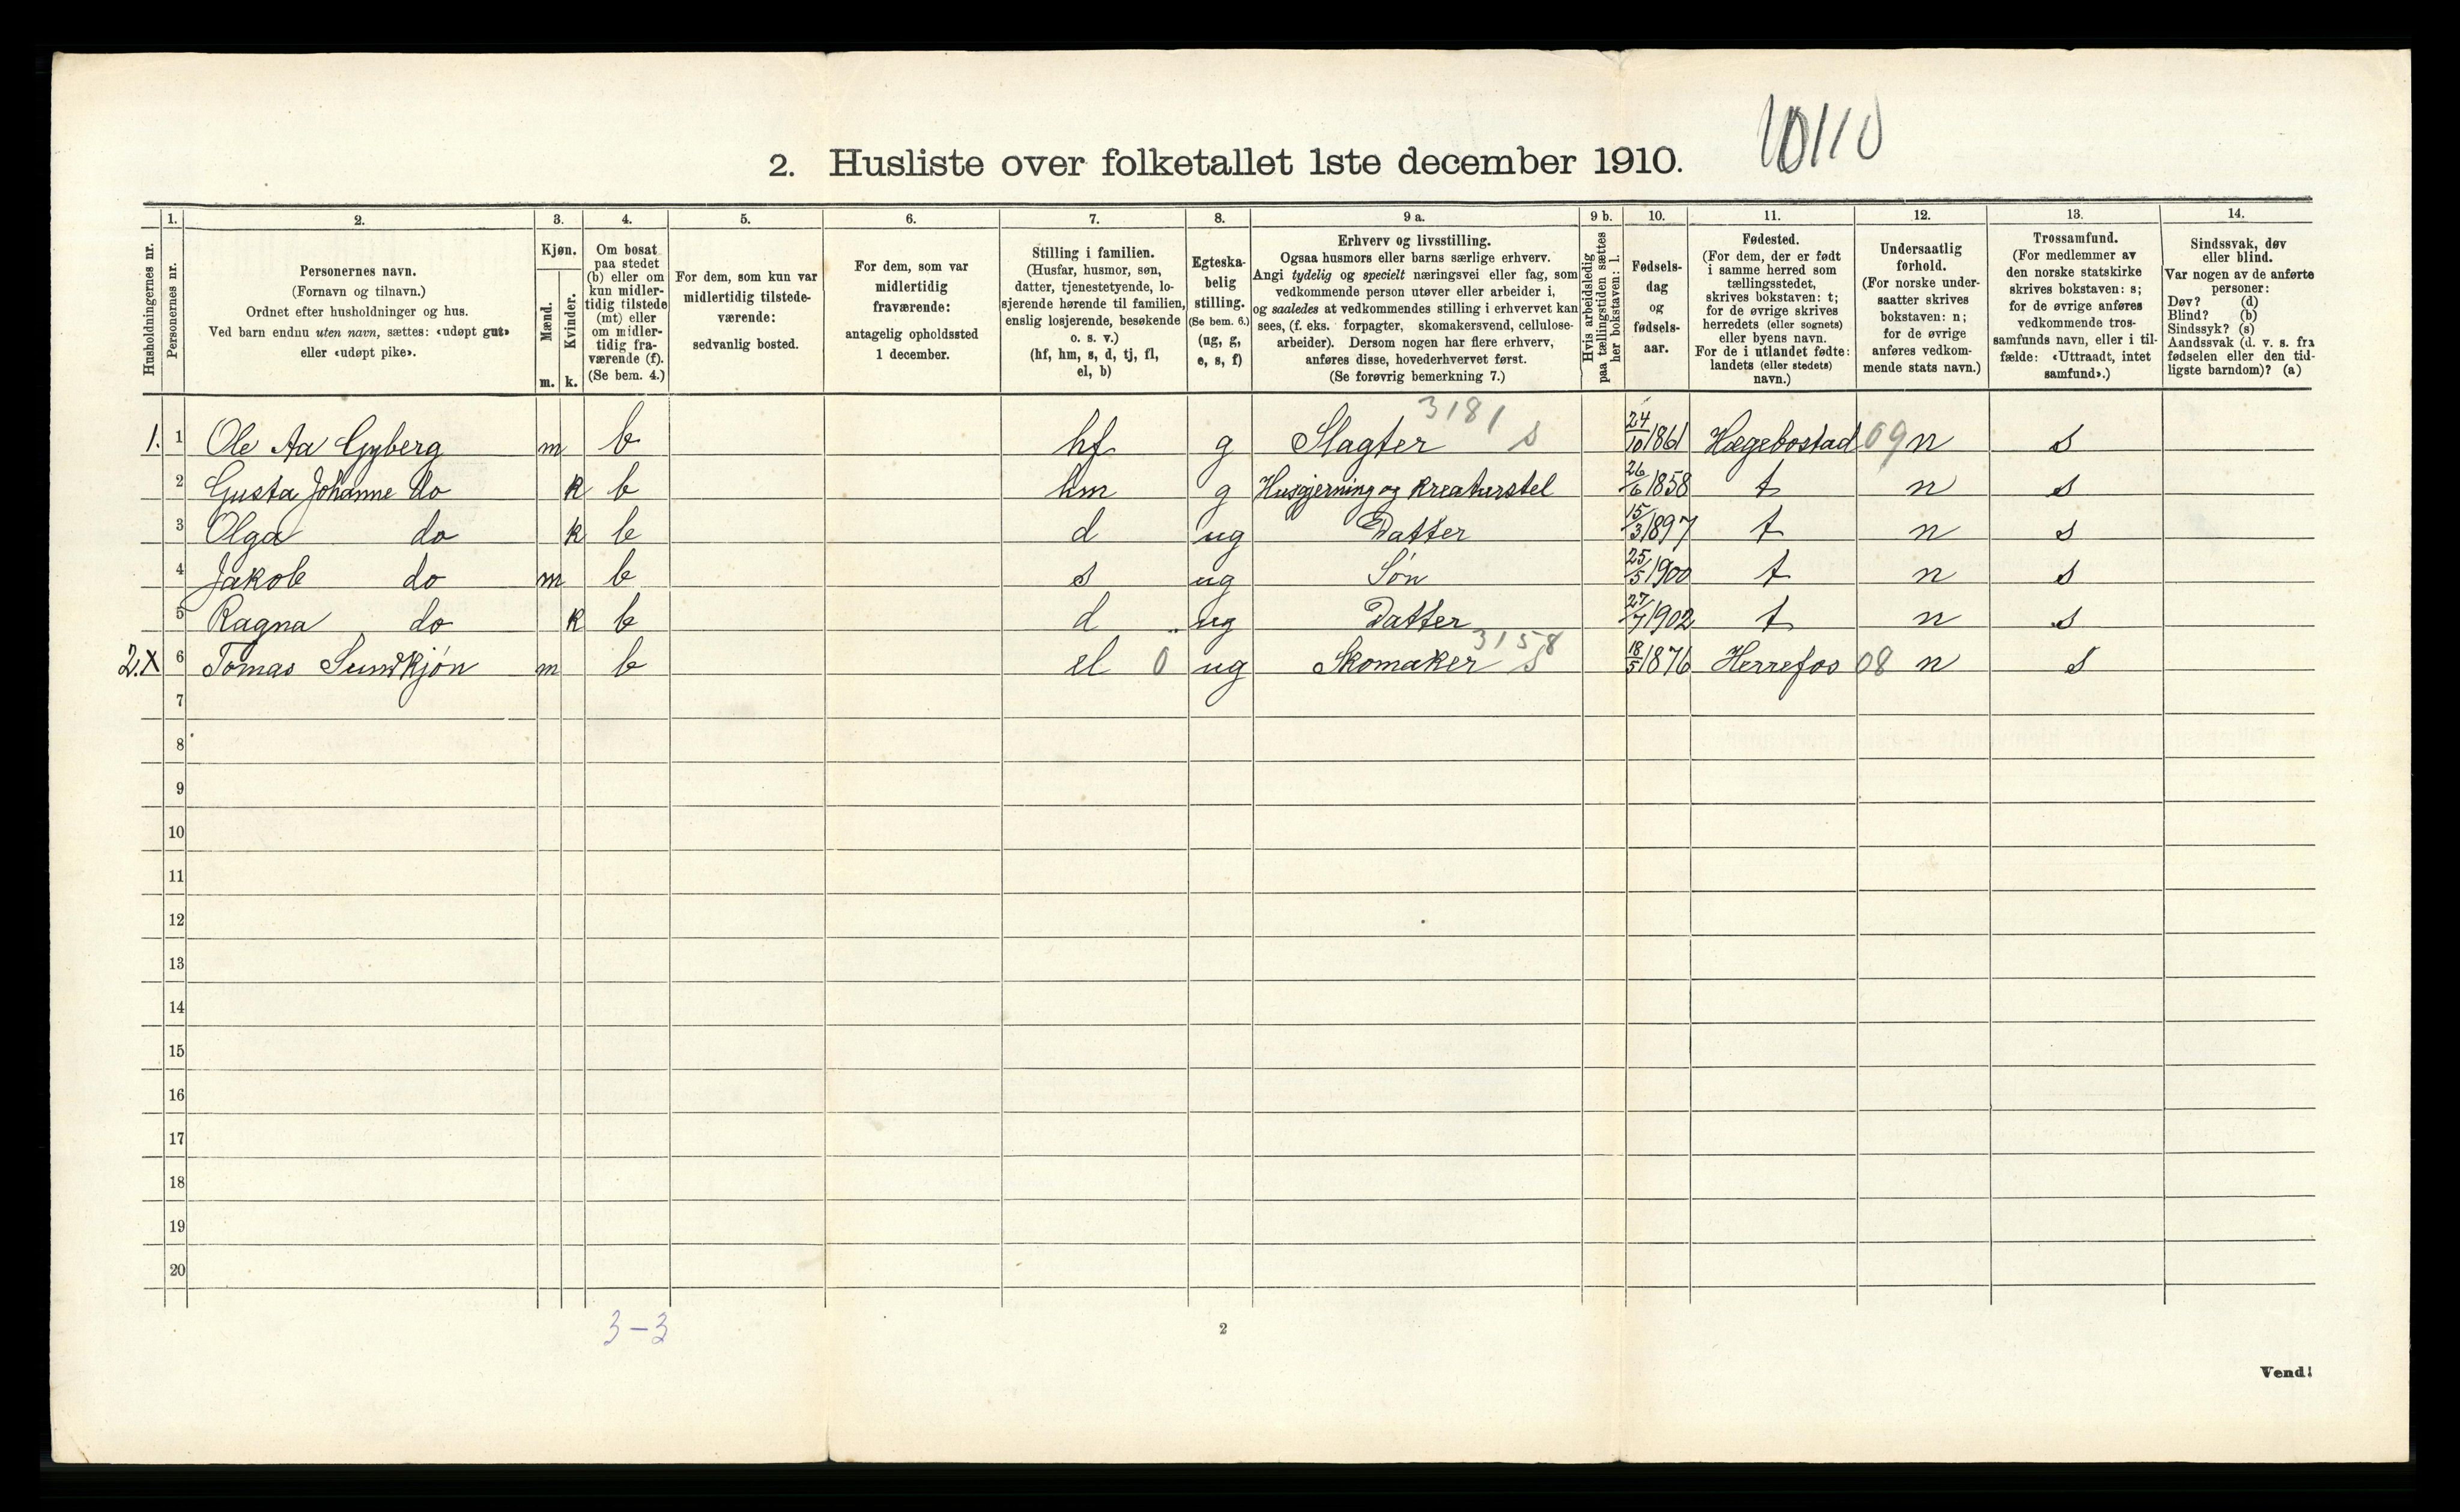 10110
2. Husliste over folketallet 1ste december 1910.
Husholdningernes nr.
1. Personernes nr.
2. Personernes navn. (Fornavn og tilnavn.) Ordnet efter husholdninger og hus. Ved barn endnu uten navn, sættes: «udøpt gut» eller «udøpt pike».
3. Kjøn. Mænd. m. Kvinder. k.
4. Om bosat paa stedet (b) eller om kun midler-tidig tilstede (mt) eller om midler-tidig fra-værende (f). (Se bem. 4.)
5. For dem, som kun var midlertidig tilstede-værende: sedvanlig bosted.
6. For dem, som var midlertidig fraværende: antagelig opholdssted 1 december.
7. Stilling i familien. (Husfar, husmor, søn, datter, tjenestetyende, lo-sjerende hørende til familien, enslig losjerende, besøkende o. s. v.) (hf, hm, s, d, tj, fl, el, b)
8. Egteska-belig stilling. (Se bem. 6.) (ug, g, e, s, f)
9 a. Erhverv og livsstilling. Ogsaa husmors eller barns særlige erhverv. Angi tydelig og specielt næringsvei eller fag, som vedkommende person utøver eller arbeider i, og saaledes at vedkommendes stilling i erhvervet kan sees, (f. eks. forpagter, skomakersvend, cellulose-arbeider). Dersom nogen har flere erhverv, anføres disse, hovederhvervet først. (Se forøvrig bemerkning 7.)
9 b. Hvis arbeidsledig paa tællingstiden sættes her bokstaven: l.
10. Fødsels-dag og fødsels-aar.
11. Fødested. (For dem, der er født i samme herred som tællingsstedet, skrives bokstaven: t; for de øvrige skrives herredets (eller sognets) eller byens navn. For de i utlandet fødte: landets (eller stedets) navn.)
12. Undersaatlig forhold. (For norske under-saatter skrives bokstaven: n; for de øvrige anføres vedkom-mende stats navn.)
13. Trossamfund. (For medlemmer av den norske statskirke skrives bokstaven: s; for de øvrige anføres vedkommende tros-samfunds navn, eller i til-fælde: «Uttraadt, intet samfund».)
14. Sindssvak, døv eller blind. Var nogen av de anførte personer: Døv? (d) Blind? (b) Sindssyk? (s) Aandssvak (d. v. s. fra fødselen eller den tid-ligste barndom)? (a)
1. 1 Ole Aa Gyberg m b hf g Slagter 3181 s 24/10 1861 Hægebostad 09 n s
2 Gusta Johanne do k b hm g Husgjerning og Kreaturstel 26/6 1858 t n s
3 Olga do k b d ug Datter 15/3 1897 t n s
4 Jakob do m b s ug Søn 25/5 1900 t n s
5 Ragna do k b d ug Datter 27/7 1902 t n s
2. X 6 Tomas m b el 0 ug Skomaker 3158 s 18/5 1876 Herrefos 08 n s
7
8
9
10
11
12
13
14
15
16
17
18
19
20
3-3
2
Vend!